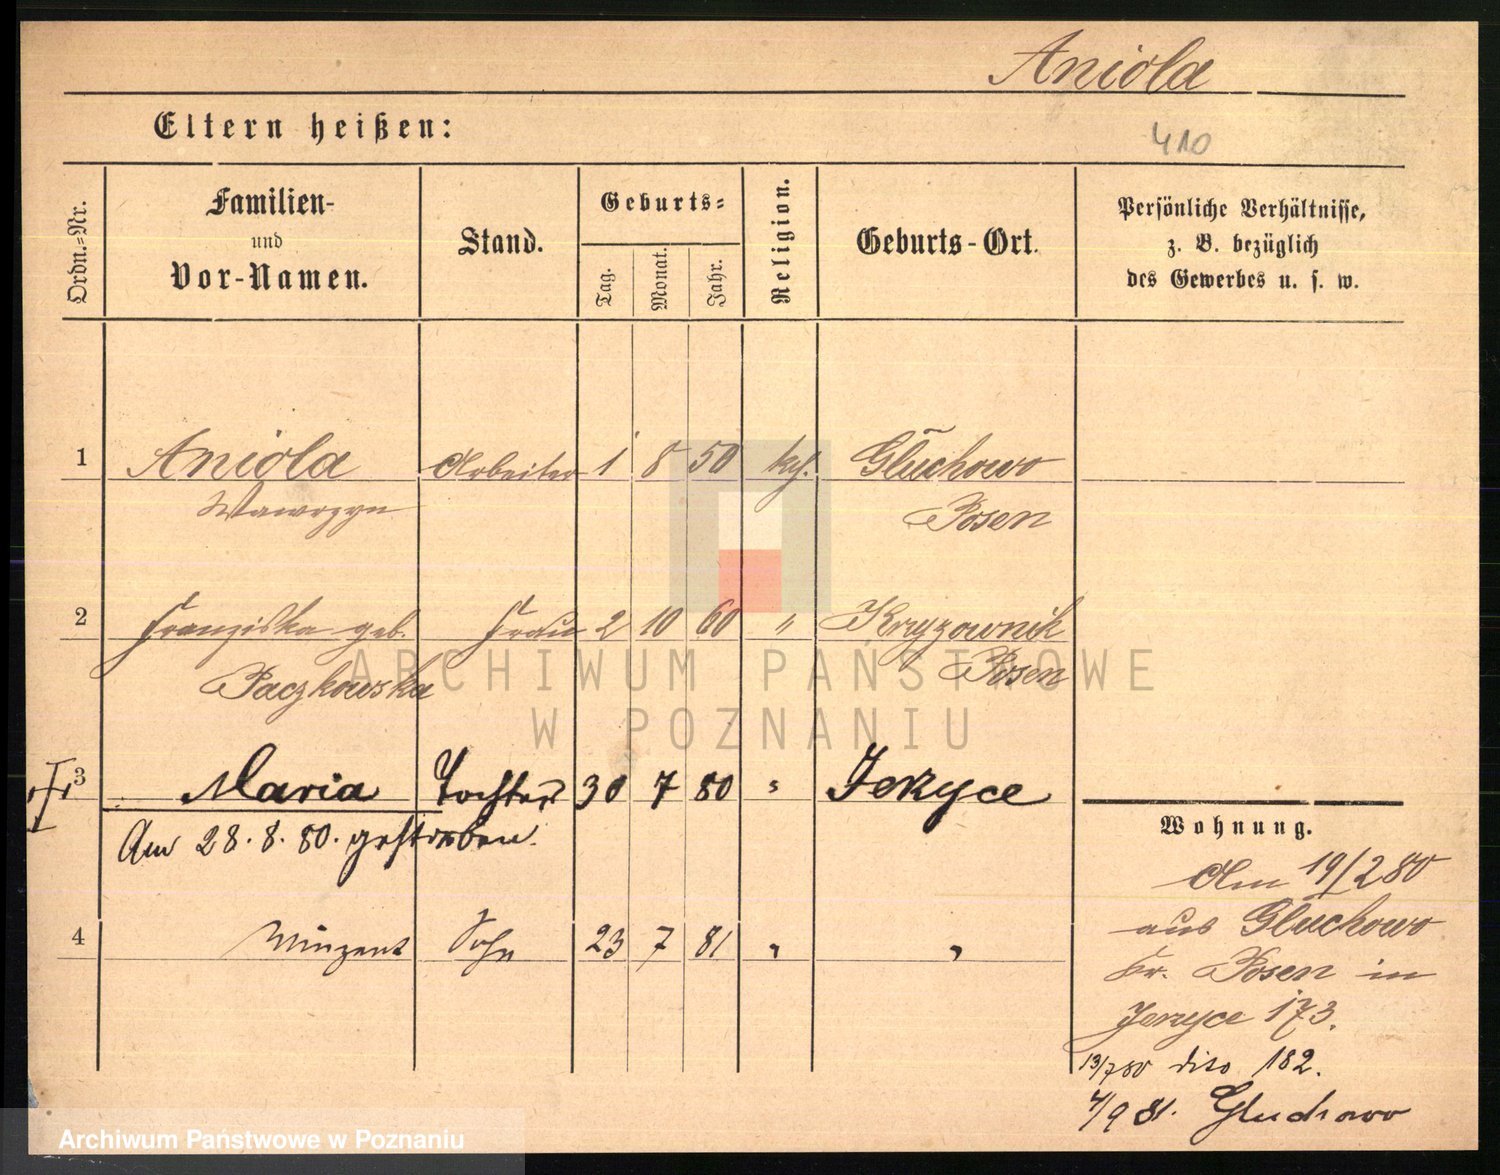 Aniola
Eltern heißen:
410
Ordn.=Nr.
Familien-
und
Vor-Namen.
Stand.
Geburts=
Tag.
Monat.
Jahr.
Religion.
Geburts-Ort.
Persönliche Verhältnisse,
z. B. bezüglich
des Gewerbes u. s. w.
1 Aniola Arbeiter 1 8 50 kth. Gluchowo
Wawrzyn Posen
2 Franziska geb. Frau 2 10 60 " Krzyzownik
Paczkowska Posen
ARCHIWUM PAŃSTWOWE
W POZNANIU
3 Maria Tochter 30 7 80 " Jerzyce
Am 28. 8. 80. gestorben.
4 Winzent Sohn 23 7 81 " "
Wohnung.
Am 19/2 80
aus Gluchowo
Kr. Posen in
Jerzyce 173.
13/7 80 dito 182.
4/9 81. Gluchowo
Archiwum Państwowe w Poznaniu